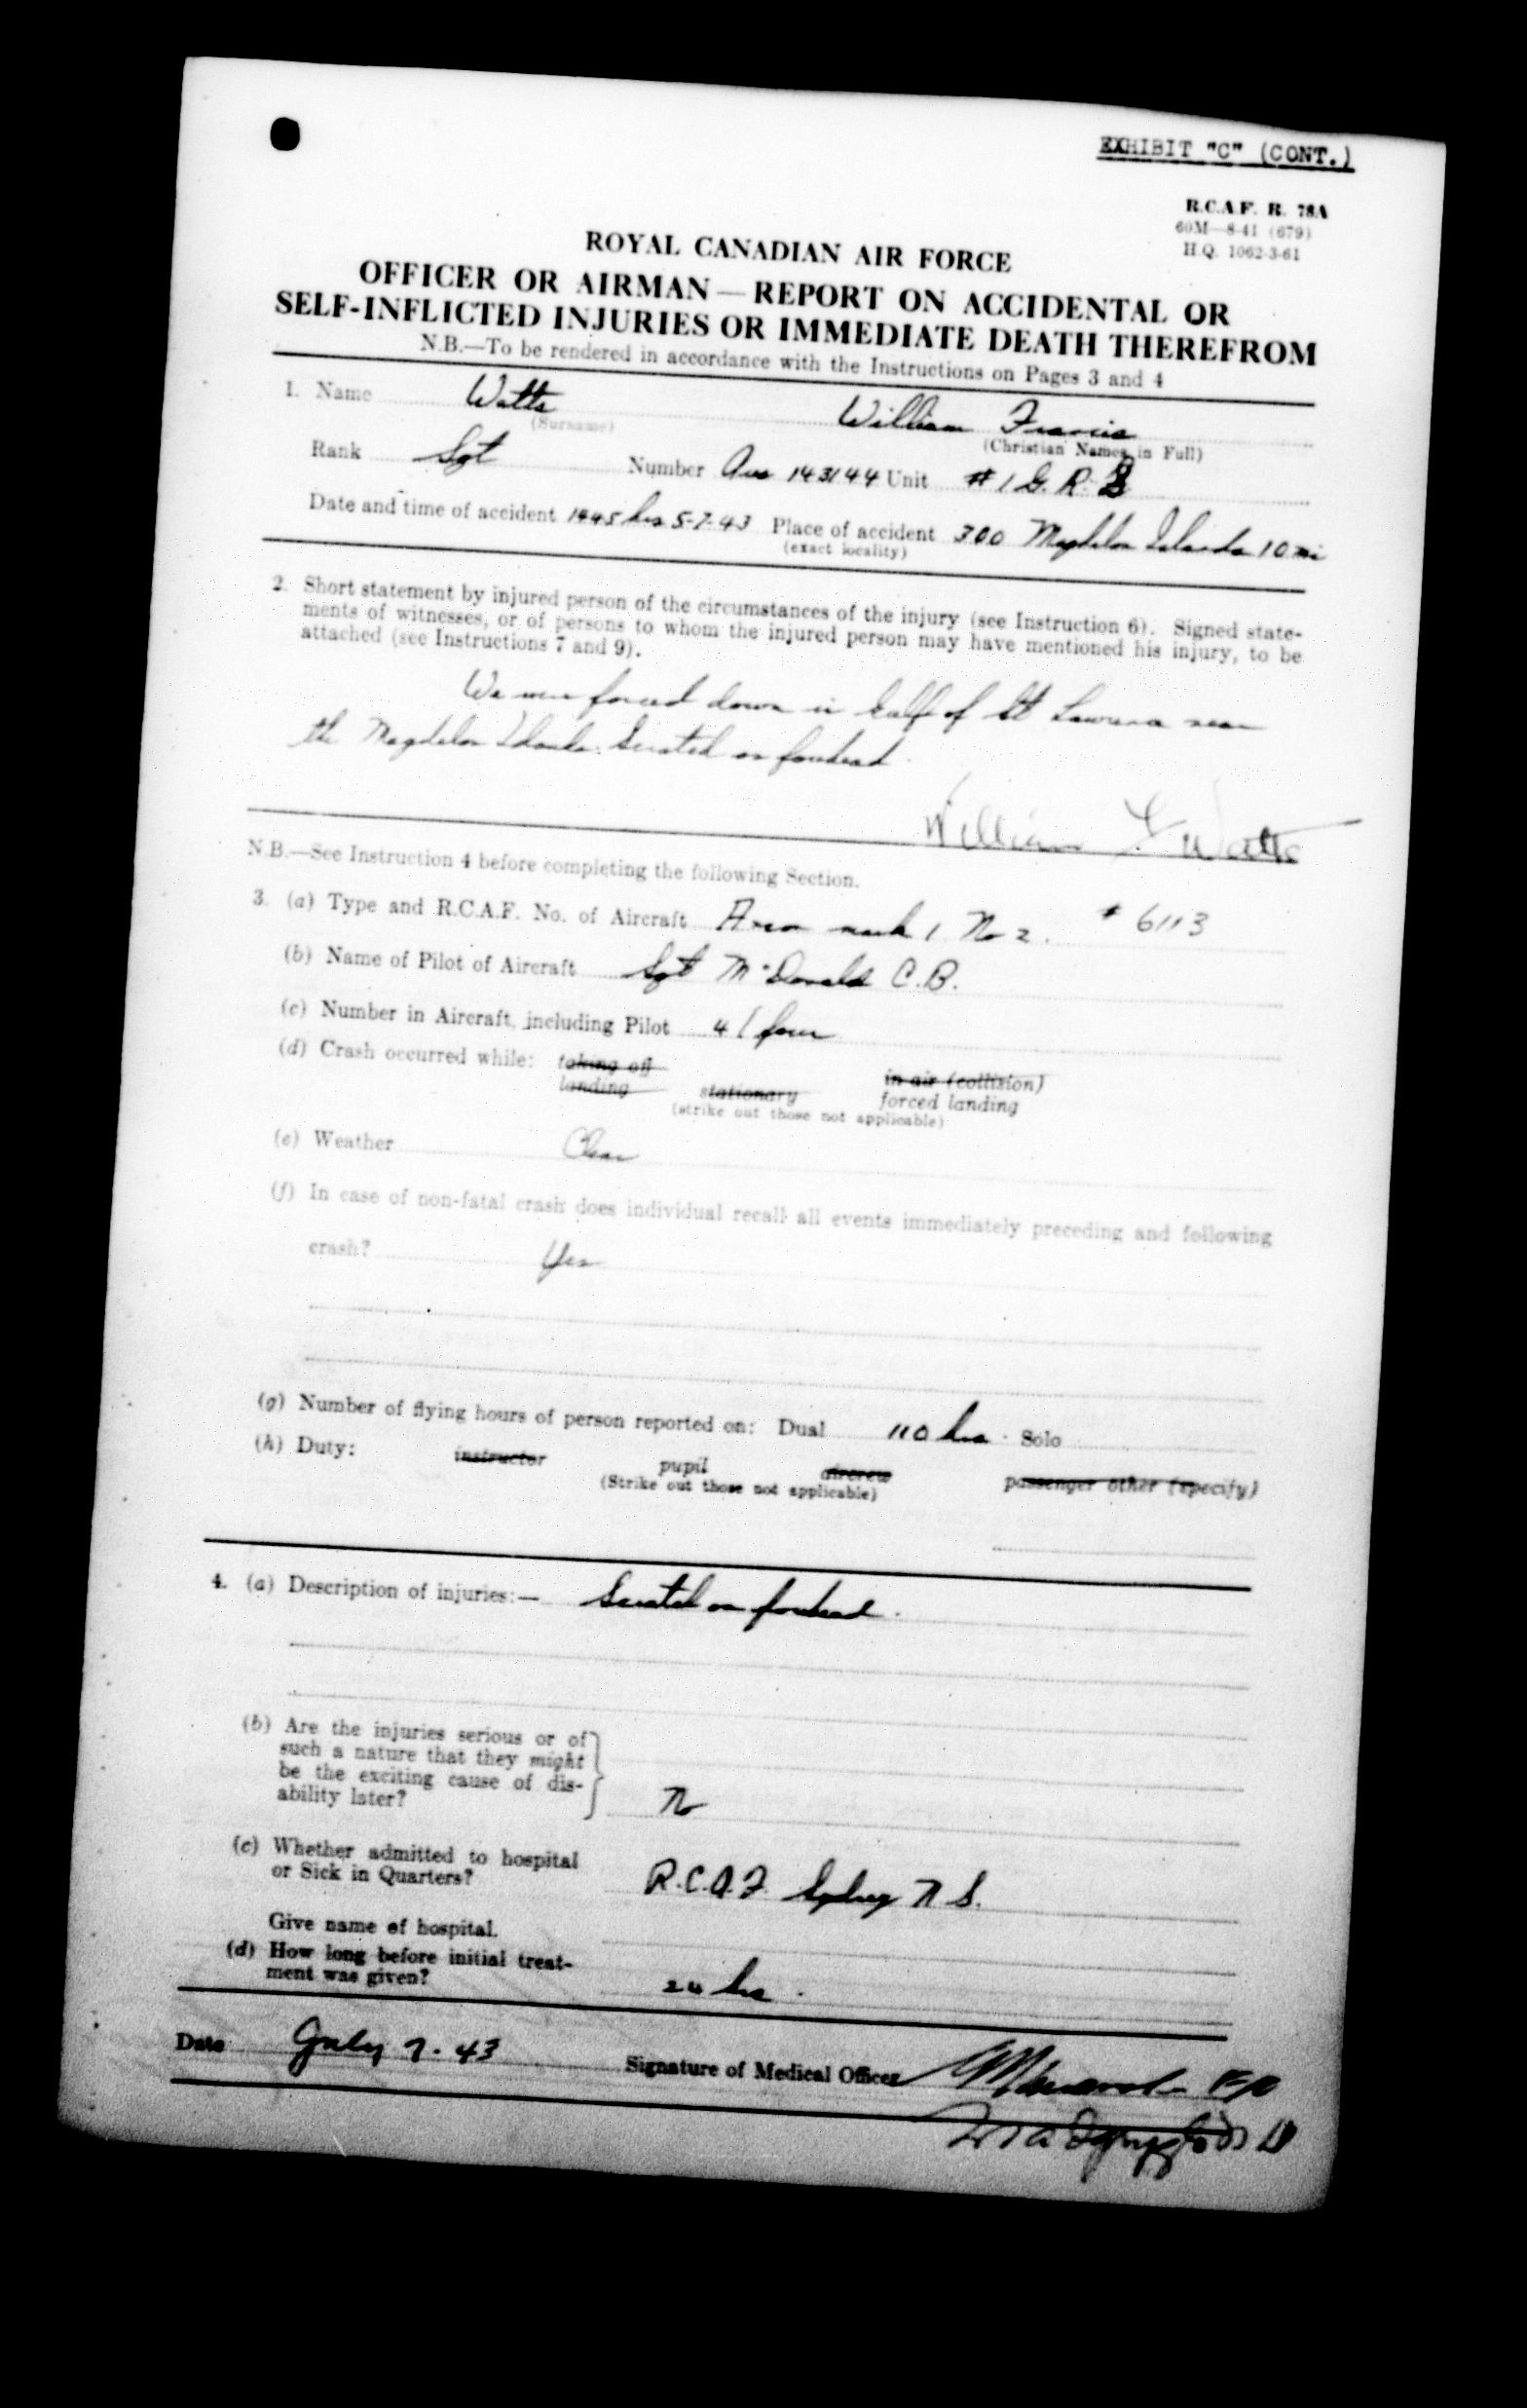 EXHIBIT "C" (CONT.)
R.C.A.F. R. 78A
60M—8-41 (679)
H.Q. 1062-3-61
ROYAL CANADIAN AIR FORCE
OFFICER OR AIRMAN—REPORT ON ACCIDENTAL OR
SELF-INFLICTED INJURIES OR IMMEDIATE DEATH THEREFROM
N.B.—To be rendered in accordance with the Instructions on Pages 3 and 4
1. Name Watts William Francis
(Surname) (Christian Names in Full)
Rank Sgt Number Aus 143144 Unit #1 G. R. S
Date and time of accident 1445 hrs 5-7-43 Place of accident 300 Magdelen Islands 10 mi
(exact locality)
2. Short statement by injured person of the circumstances of the injury (see Instruction 6). Signed state-
ments of witnesses, or of persons to whom the injured person may have mentioned his injury, to be
attached (see Instructions 7 and 9).
We were forced down in Gulf of St Lawrence near
the Magdelen Islands. Scratch on forehead
William F Watts
N.B.—See Instruction 4 before completing the following Section.
3. (a) Type and R.C.A.F. No. of Aircraft Anson mark 1 No 2. # 6113
(b) Name of Pilot of Aircraft Sgt McDonald C.B.
(c) Number in Aircraft, including Pilot 4 / four
(d) Crash occurred while: taking off in air (collision)
landing stationary forced landing
(strike out those not applicable)
(e) Weather Clear
(f) In case of non-fatal crash does individual recall all events immediately preceding and following
crash? Yes
(g) Number of flying hours of person reported on: Dual 110 hrs. Solo
(h) Duty: instructor pupil aircrew passenger other (specify)
(Strike out those not applicable)
4. (a) Description of injuries:— Scratch on forehead.
(b) Are the injuries serious or of
such a nature that they might
be the exciting cause of dis-
ability later? No
(c) Whether admitted to hospital
or Sick in Quarters? R.C.A.F. Sydney N S.
Give name of hospital.
(d) How long before initial treat-
ment was given? 24 hrs.
Date July 7-43 Signature of Medical Officer F/O